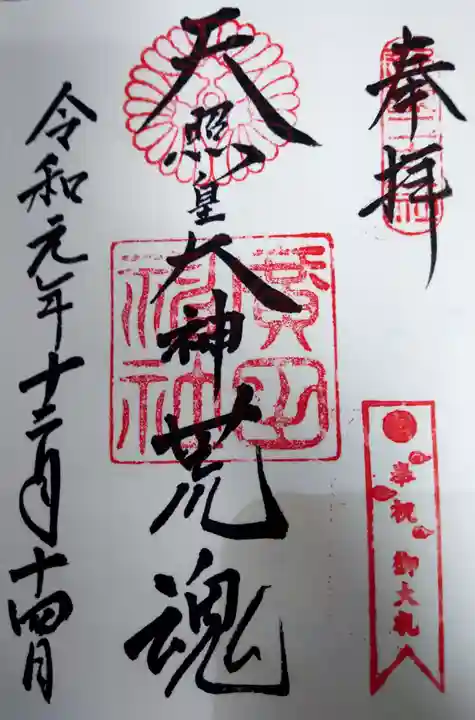 奉拝
天照皇大神荒魂
令和元年十二月十四日
奉祝 御大礼